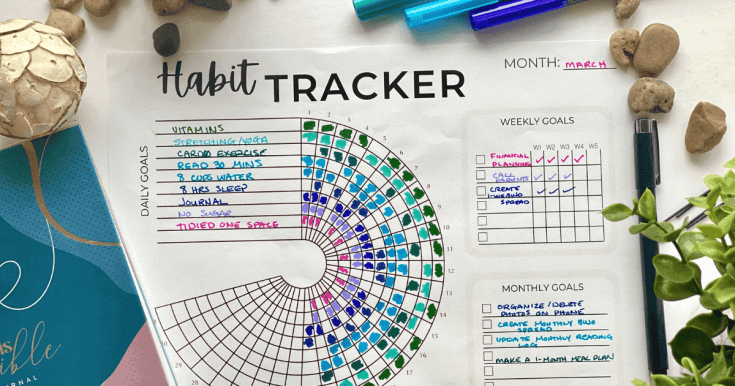 Habit TRACKER
MONTH: MARCH
DAILY GOALS
VITAMINS
STRETCHING/YOGA
CARDIO EXERCISE
READ 30 MINS
8 CUPS WATER
8 HRS SLEEP
JOURNAL
NO SUGAR
TIDIED ONE SPACE
1
2
3
4
5
6
7
8
9
10
11
12
13
14
15
16
17
28
31
WEEKLY GOALS
W1 W2 W3 W4 W5
FINANCIAL
PLANNING
CALL
PARENTS
CREATE
SPREAD
MONTHLY GOALS
ORGANIZE/DELETE
PHOTOS ON PHONE
CREATE MONTHLY BUJO
SPREAD
UPDATE MONTHLY READING
LOG
MAKE A 1-MONTH MEAL PLAN
ible
JOURNAL